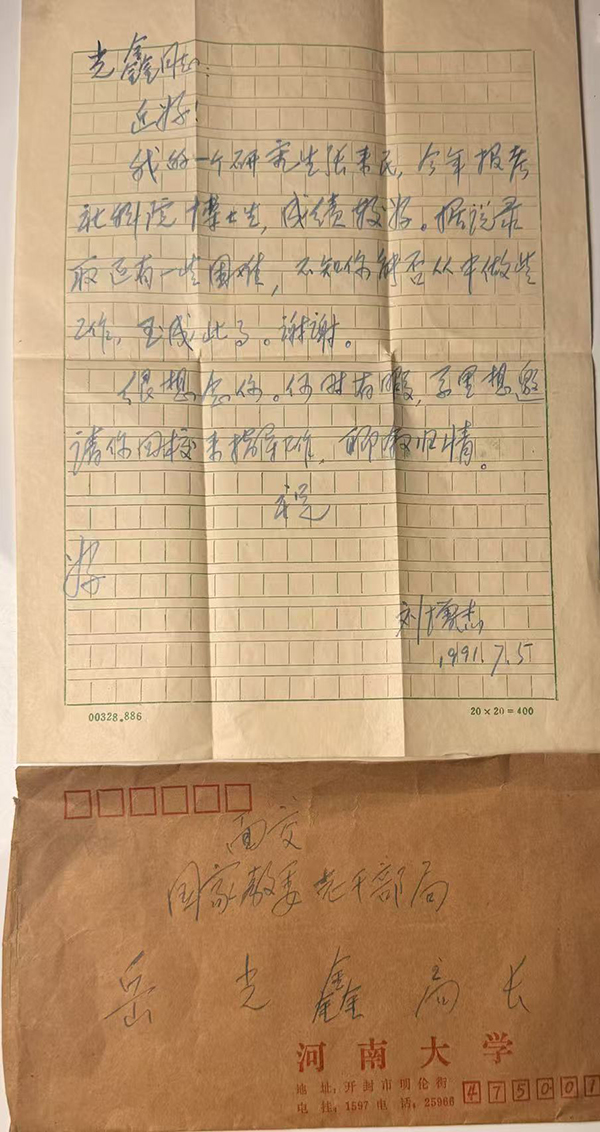 光鑫同志:
近好!
我的一个研究生张来民,今年报考
社科院博士生,成绩较好。据说录
取还有一些困难,不知你能否从中做些
工作,玉成此事。谢谢。
很想念你。何时有暇,学里想邀
请你回校来指导工作,聊叙旧情。
祝
好
刘增杰
1991.7.5
00328.886
20×20=400
面交
国家教委老干部局
岳光鑫局长
河南大学
地址:开封市明伦街
电挂:1597 电话:25966
475001